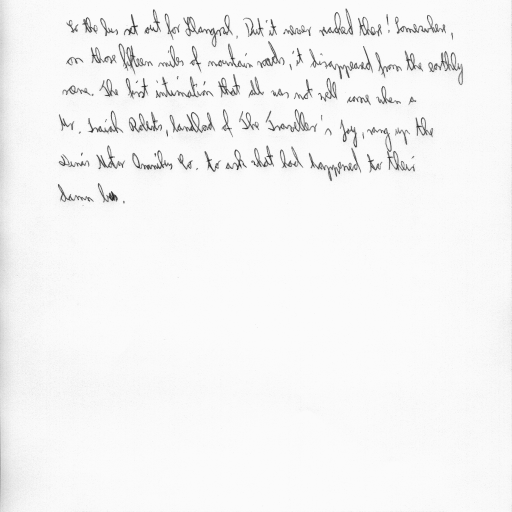 So the bus set out for Llangrad. But it never reached there! Somewhere,
on those fifteen miles of mountain roads, it disappeared from the earthly
scene. The first intimation that all was not well came when a
Mr. Isaiah Roberts, landlord of The Traveller's Joy, rang up the
Motor Omnibus Co. to ask what had happened to their
damn bus.